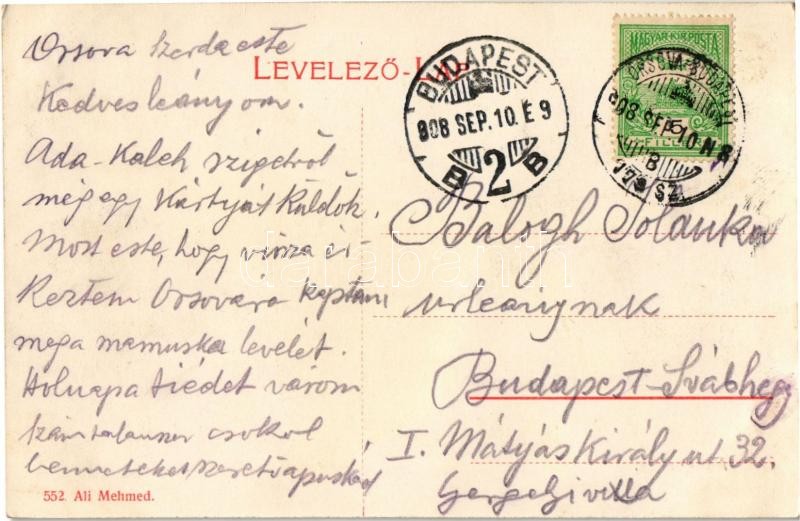 Orsova Szerda este
Kedves leányom.
Ada-Kaleh szigetről
még egy kártyát küldök.
Most este, hogy vissza ér-
keztem Orsovára kaptam
meg a mamuska levelét.
Holnap a tiédet várom
számtalanszor csókol
benneteket szerető apuskád
552 Ali Mehmed.
LEVELEZŐ-LAP
BUDAPEST
908 SEP. 10. É 9
B 2 B
MAGYAR KIR. POSTA
5
FILLÉR
ORSOVA-BUDAPEST
908 SEP. 10 N 8
B
Balogh Jolánka
urleánynak
Budapest-Svábhegy
I. Mátyás Király ut 32.
Gergelyi villa
darabanth